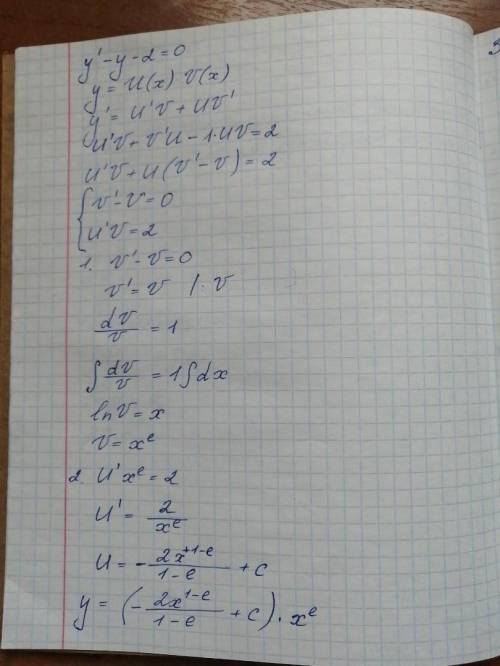 y' - y - 2 = 0
y = U(x) V(x)
y' = U'V + UV'
U'V + V'U - 1·UV = 2
U'V + U(V' - V) = 2
{ V' - V = 0
U'V = 2
1. V' - V = 0
V' = V /· V
dV/V = 1
∫ dV/V = 1∫dx
ln V = x
V = x^e
2. U' x^e = 2
U' = 2/x^e
U = - 2x^{+1-e}/(1-e) + C
y = (- 2x^{1-e}/(1-e) + C) · x^e